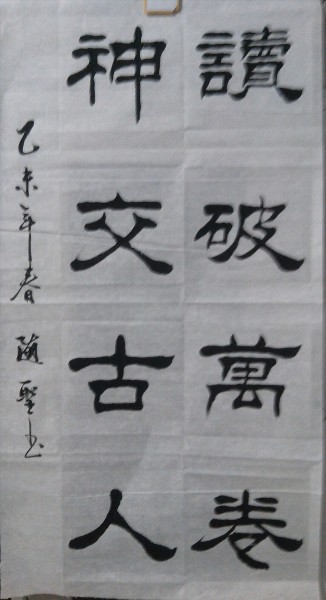 讀破萬卷
神交古人
乙未年春 随聖书